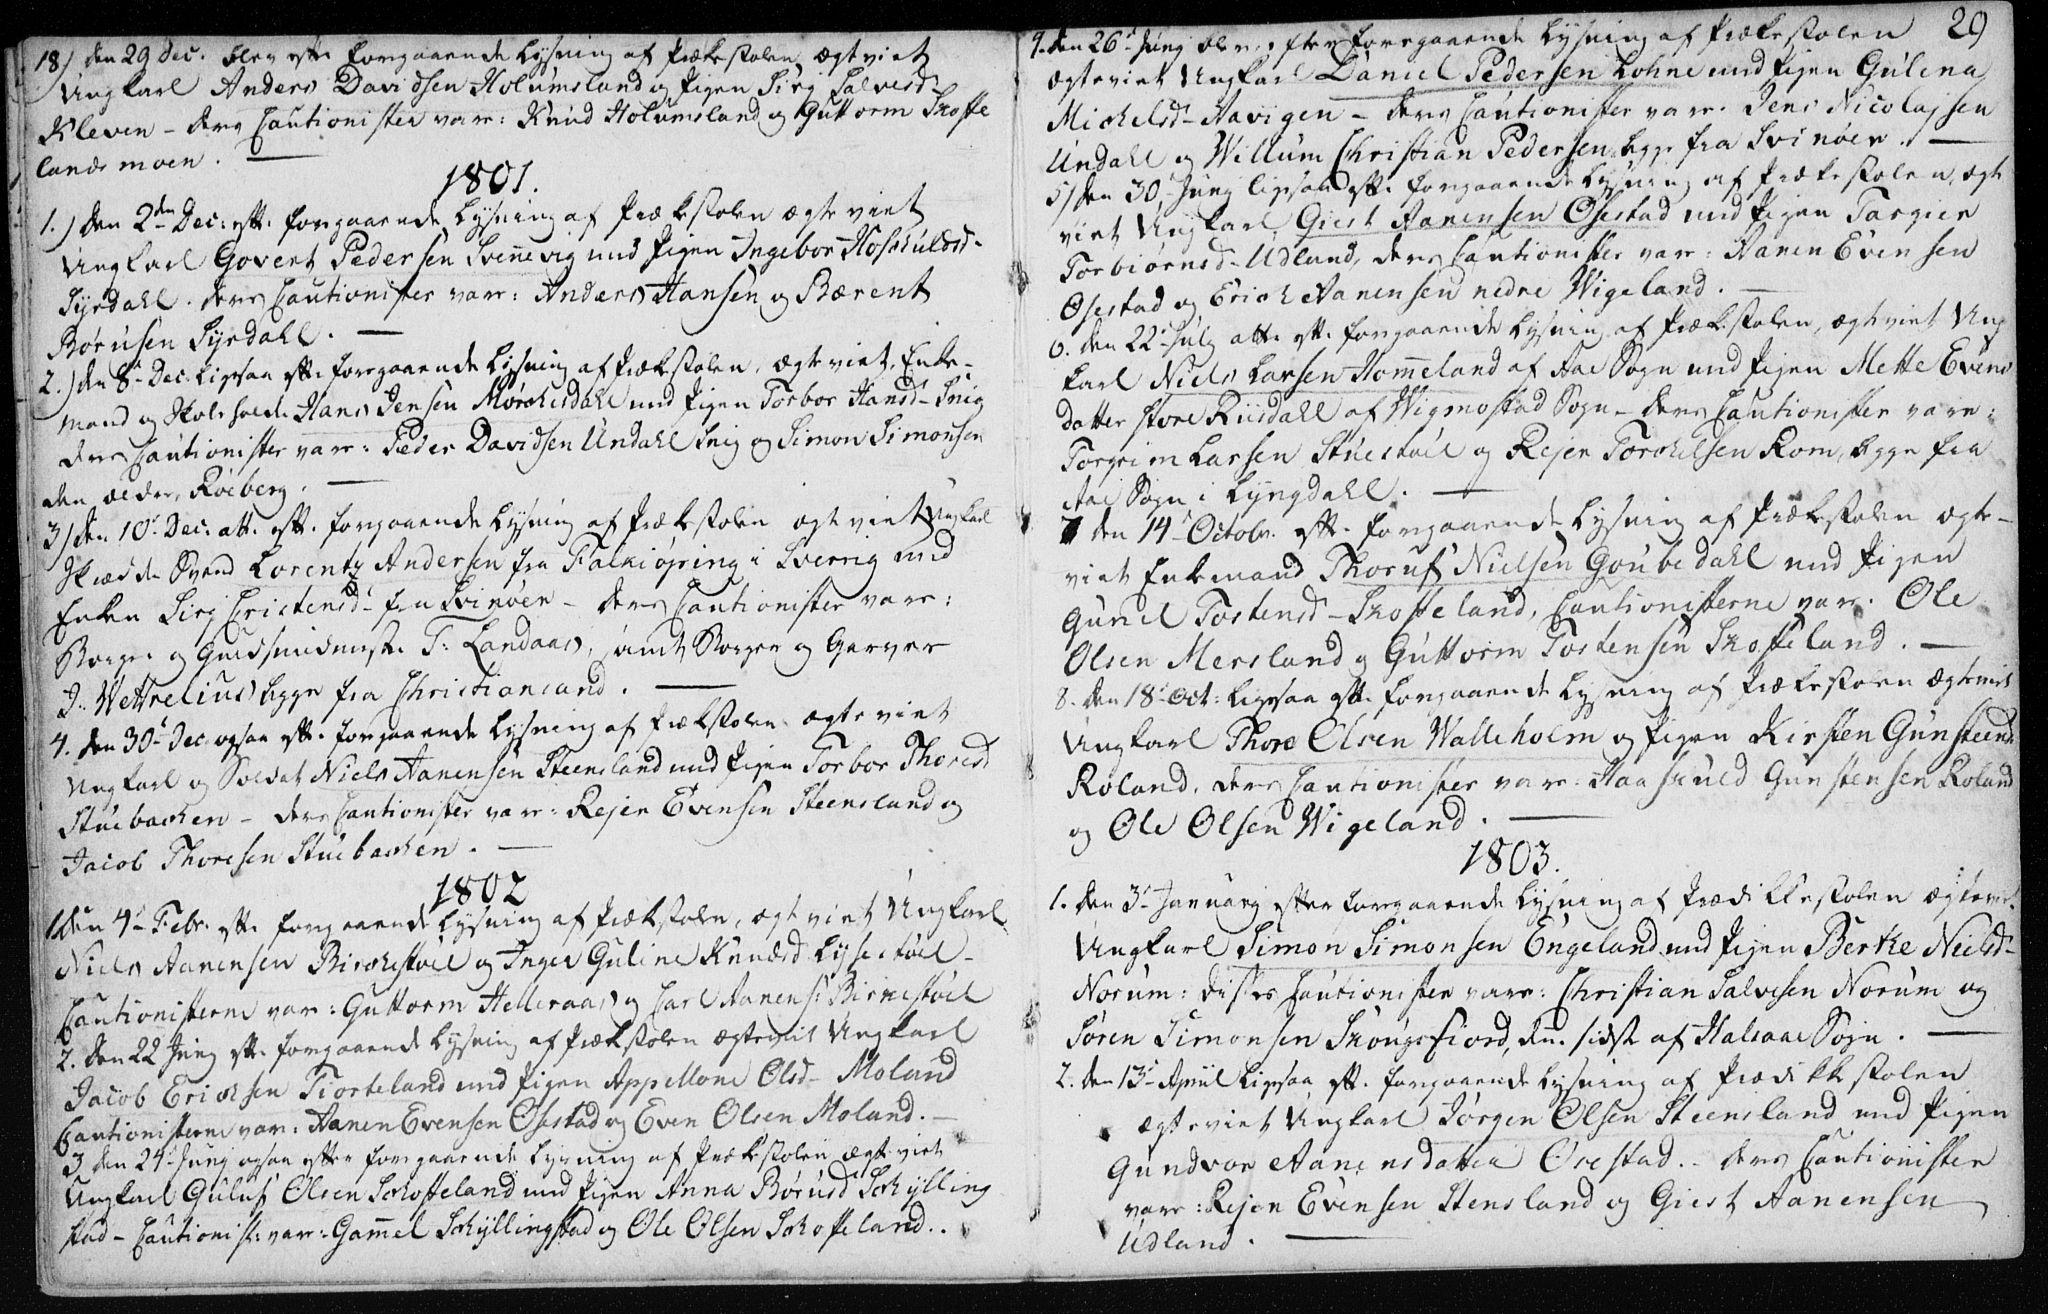 18) den 29 Dec. blev eftr. foregaaende Lysning af Prækestolen ægteviet
Ungkarl Anders Davidsen Holumsland og Pigen Sirj Salvesd-
Kleven - deres Cautionister var: Knud Holumsland og Guttorm Skoffe
lands moen. —
1801.
1.) den 2den Dec: eft. foregaaende Lysning af Prækestolen ægteviet
Ungkarl Govert Pedersen Svennevig med Pigen Ingebor Hoskuldsd-
Syrdahl. deres Cautionister var: Anders Hansen og Bærent
Börusen Syrdahl. —
2.) den 8d- Dec. ligesaa eft. foregaaende Lysning af Prækestolen, ægteviet, Enke-
mand og Skoleholder Hans Jensen Mørchesdahl med Pigen Torbor Hansd- Snig
deres Cautionister var: Peder Davidsen Undahl Snig og Simon Simonsen
den ælder, Röeberg. —
3) den 10d Dec: att. eft. foregaaende Lysning af Prækestolen ægteviet Ungkarl
Skrædder Svend Lorentz Andersen fra Falkiöping i Sverrig med
Enken Sirj Cristensd- fra Svinöen - deres Cautionister var:
Borger og Guldsmidmest. T: Landaas, samt Borger og Garver
J. Wettrelius begge fra Christiansand. —
4. den 30d- Dec ogsaa eft. foregaaende Lysning af Prækestolen ægteviet
Ungkarl og Soldat Niels Aanensen Steensland med Pigen Torbor Thoresd
Stuebachen - deres Cautionister var: Rejer Evensen Steensland og
Jacob Thoresen Stuebachen. —
1802
1 den 4d- Febr. eft. foregaaende Lysning af Prækestolen, ægteviet Ungkarl
Niels Aanensen Birchestöel og Inger Guline Knudsd Lyseestöel -
Cautionisterne var: Guttorm Helleraas og Carl Aanens: Birkestöel
2. den 22 Junj eft. foregaaende Lysning af Prækestolen ægteviet Ungkarl
Jacob Erichsen Fiorteland med Pigen Appellone Olsd- Moland
Cautionisterne var: Aanen Evensen Osestad og Even Olsen Moland. —
3 den 24d- Junj ogsaa efter foregaaende Lysning af Prækestolen ægteviet
Ungkarl Guluf Olsen Schoffeland med Pigen Anna Börusd Schylling
stad - Cautionist: var: Gammel Schyllingstad og Ole Olsen Schoffeland.
29
4. den 26d Junj blev efter foregaaende Lysning af Prækestolen
ægteviet Ungkarl Daniel Pedersen Lohne med Pigen Gulena
Michelsd- Aavigen - deres Cautionister var. Jens Nicolajsen
Undahl og Willum Christian Pedersen begge fra Svinöer. —
5) den 30d Junj ligesaa eft. foregaaende Lysning af Prækestolen, ægte
viet Ungkarl, Giert Aanensen Osestad med Pigen Targier
Torbiörnsd- Udland, deres Cautionister var: Aanen Evensen
Osestad og Erich Aanensen nedre Wigeland. —
6. den 22d- Julj atter eft. foregaaende Lysning af Prækestolen, ægteviet Ung
karl Niels Larsen Hommeland af Aae Sogn med Pigen Mette Evens
datter store Riisdahl af Wigmostad Sogn - deres Cautionister vare:
Torgrim Larsen Stuestöel og Rejer Torchelsen Rom, begge fra
Aae Sogn i Lyngdahl. —
7 den 14d- Octobr. eft. foregaaende Lysning af Prækestolen ægte-
viet Enkemand Thoruf Nielsen Goubedahl med Pigen
Gunel Tostensd - Skoffeland, Cautionisterne var. Ole
Olsen Mersland og Guttorm Tostensen Skoffeland. —
8. den 18d- Oct: ligesaa eft. foregaaende Lysning af Prækestolen ægteviet
Ungkarl Thore Olsen Walleholm og Pigen Kirsten Gunsteensd
Roland, deres Cautionister var: Haaskuld Gunstensen Roland
og Ole Olsen Wigeland. —
1803.
1. den 3d- Januarj efter foregaaende Lysning af Prædikkestolen ægtevi.
Ungkarl Simon Simonsen Engeland med Pigen Berthe Nielsd-
Norum: disses Cautionister vare: Christian Salvesen Norum og
Sören Simonsen Skougsfiord, den sidste af Halsaae Sogn. —
2. den 13d- April ligesaa eft. foregaaende Lysning af Prædikkestolen
ægteviet Ungkarl Jörgen Olsen Steensland med Pigen
Gundvor Aanensdatter Osestad. - deres Cautionister
vare: Rejer Evensen Stensland og Giert Aanensen
Udland. —